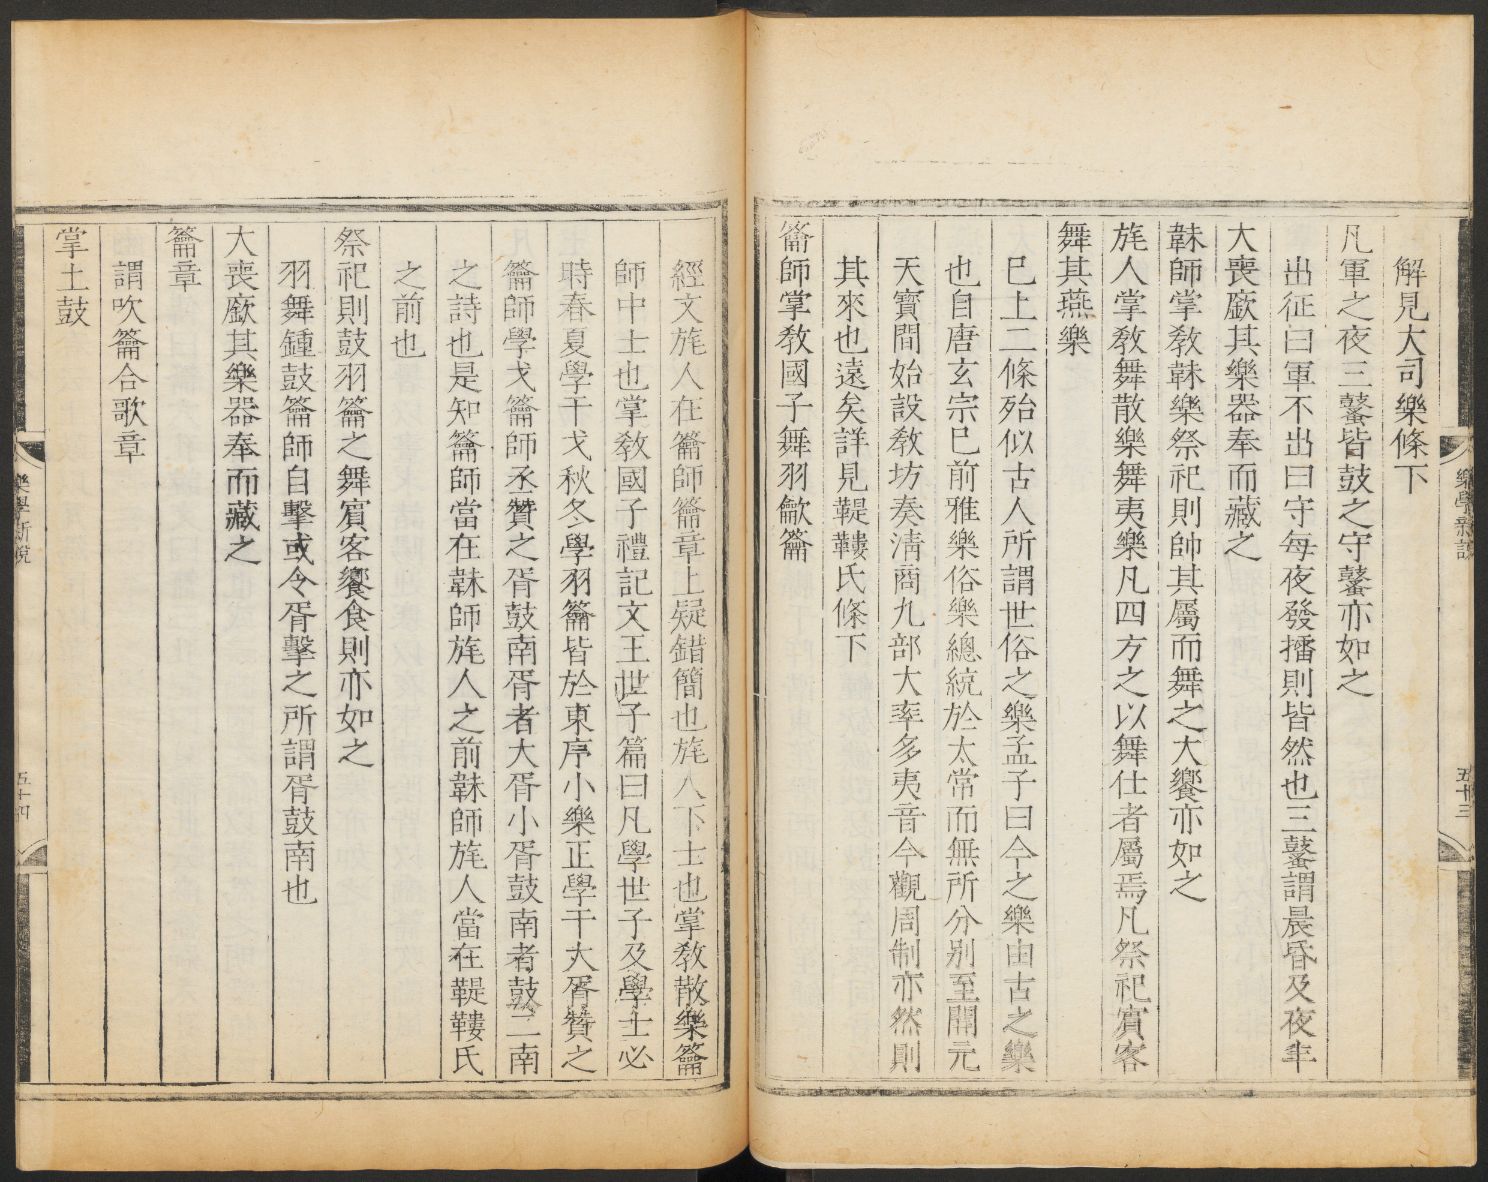 樂學新說
五十三
解見大司樂條下
凡軍之夜三鼜皆鼓之守鼜亦如之
出征曰軍不出曰守每夜發擂則皆然也三鼜謂晨昏及夜半
大喪廞其樂器奉而藏之
韎師掌教韎樂祭祀則帥其屬而舞之大饗亦如之
旄人掌教舞散樂舞夷樂凡四方之以舞仕者屬焉凡祭祀賓客
舞其燕樂
已上二條殆似古人所謂世俗之樂孟子曰今之樂由古之樂
也自唐玄宗已前雅樂俗樂總統於太常而無所分别至開元
天寶間始設教坊奏清商九部大率多夷音今觀周制亦然則
其來也遠矣詳見鞮鞻氏條下
籥師掌教國子舞羽龡籥
經文旄人在籥師籥章上疑錯簡也旄人下士也掌教散樂籥
師中士也掌教國子禮記文王世子篇曰凡學世子及學士必
時春夏學干戈秋冬學羽籥皆於東序小樂正學干大胥贊之
籥師學戈籥師丞贊之胥鼓南胥者大胥小胥鼓南者鼓二南
之詩也是知籥師當在韎師旄人之前韎師旄人當在鞮鞻氏
之前也
祭祀則鼓羽籥之舞賓客饗食則亦如之
羽舞鍾鼓籥師自擊或令胥擊之所謂胥鼓南也
大喪廞其樂器奉而藏之
籥章
謂吹籥合歌章
掌土鼓
樂學新說
五十四